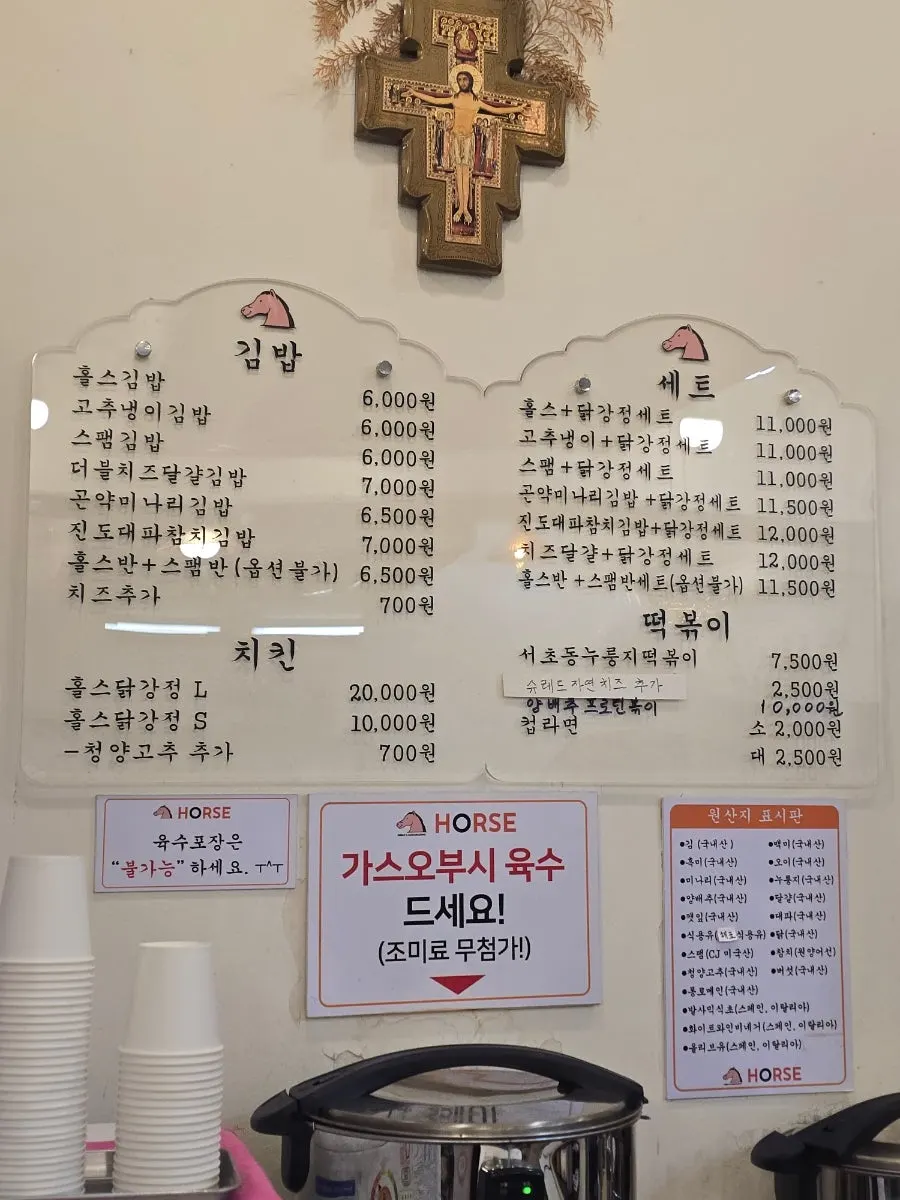 김밥
홀스김밥 6,000원
고추냉이김밥 6,000원
스팸김밥 6,000원
더블치즈달걀김밥 7,000원
곤약미나리김밥 6,500원
진도대파참치김밥 7,000원
홀스반+스팸반(옵션불가) 6,500원
치즈추가 700원
치킨
홀스닭강정 L 20,000원
홀스닭강정 S 10,000원
-청양고추 추가 700원
세트
홀스+닭강정세트 11,000원
고추냉이+닭강정세트 11,000원
스팸+닭강정세트 11,000원
곤약미나리김밥+닭강정세트 11,500원
진도대파참치김밥+닭강정세트 12,000원
치즈달걀+닭강정세트 12,000원
홀스반+스팸반세트(옵션불가) 11,500원
떡볶이
서초동누룽지떡볶이 7,500원
슈레드 자연치즈 추가 2,500원
양배추 프로틴볶이 10,000원
컵라면 소 2,000원
대 2,500원
HORSE
육수포장은
"불가능" 하세요. ㅜ^ㅜ
HORSE
가스오부시 육수
드세요!
(조미료 무첨가!)
원산지 표시판
•김 (국내산) •백미(국내산)
•흑미(국내산) •오이(국내산)
•미나리(국내산) •누룽지(국내산)
•양배추(국내산) •달걀(국내산)
•깻잎(국내산) •대파(국내산)
•식용유( 식용유) •닭(국내산)
•스팸(CJ 미국산) •참치(원양어선)
•청양고추(국내산) •버섯(국내산)
•통로메인(국내산)
•발사믹식초(스페인, 이탈리아)
•화이트와인비네거(스페인, 이탈리아)
•올리브유(스페인, 이탈리아)
HORSE